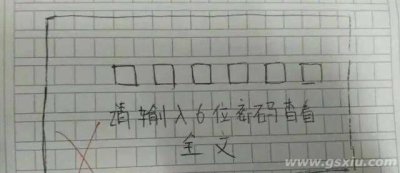 □□□□□□
请输入6位密码查看
全文
www.gsxiu.com